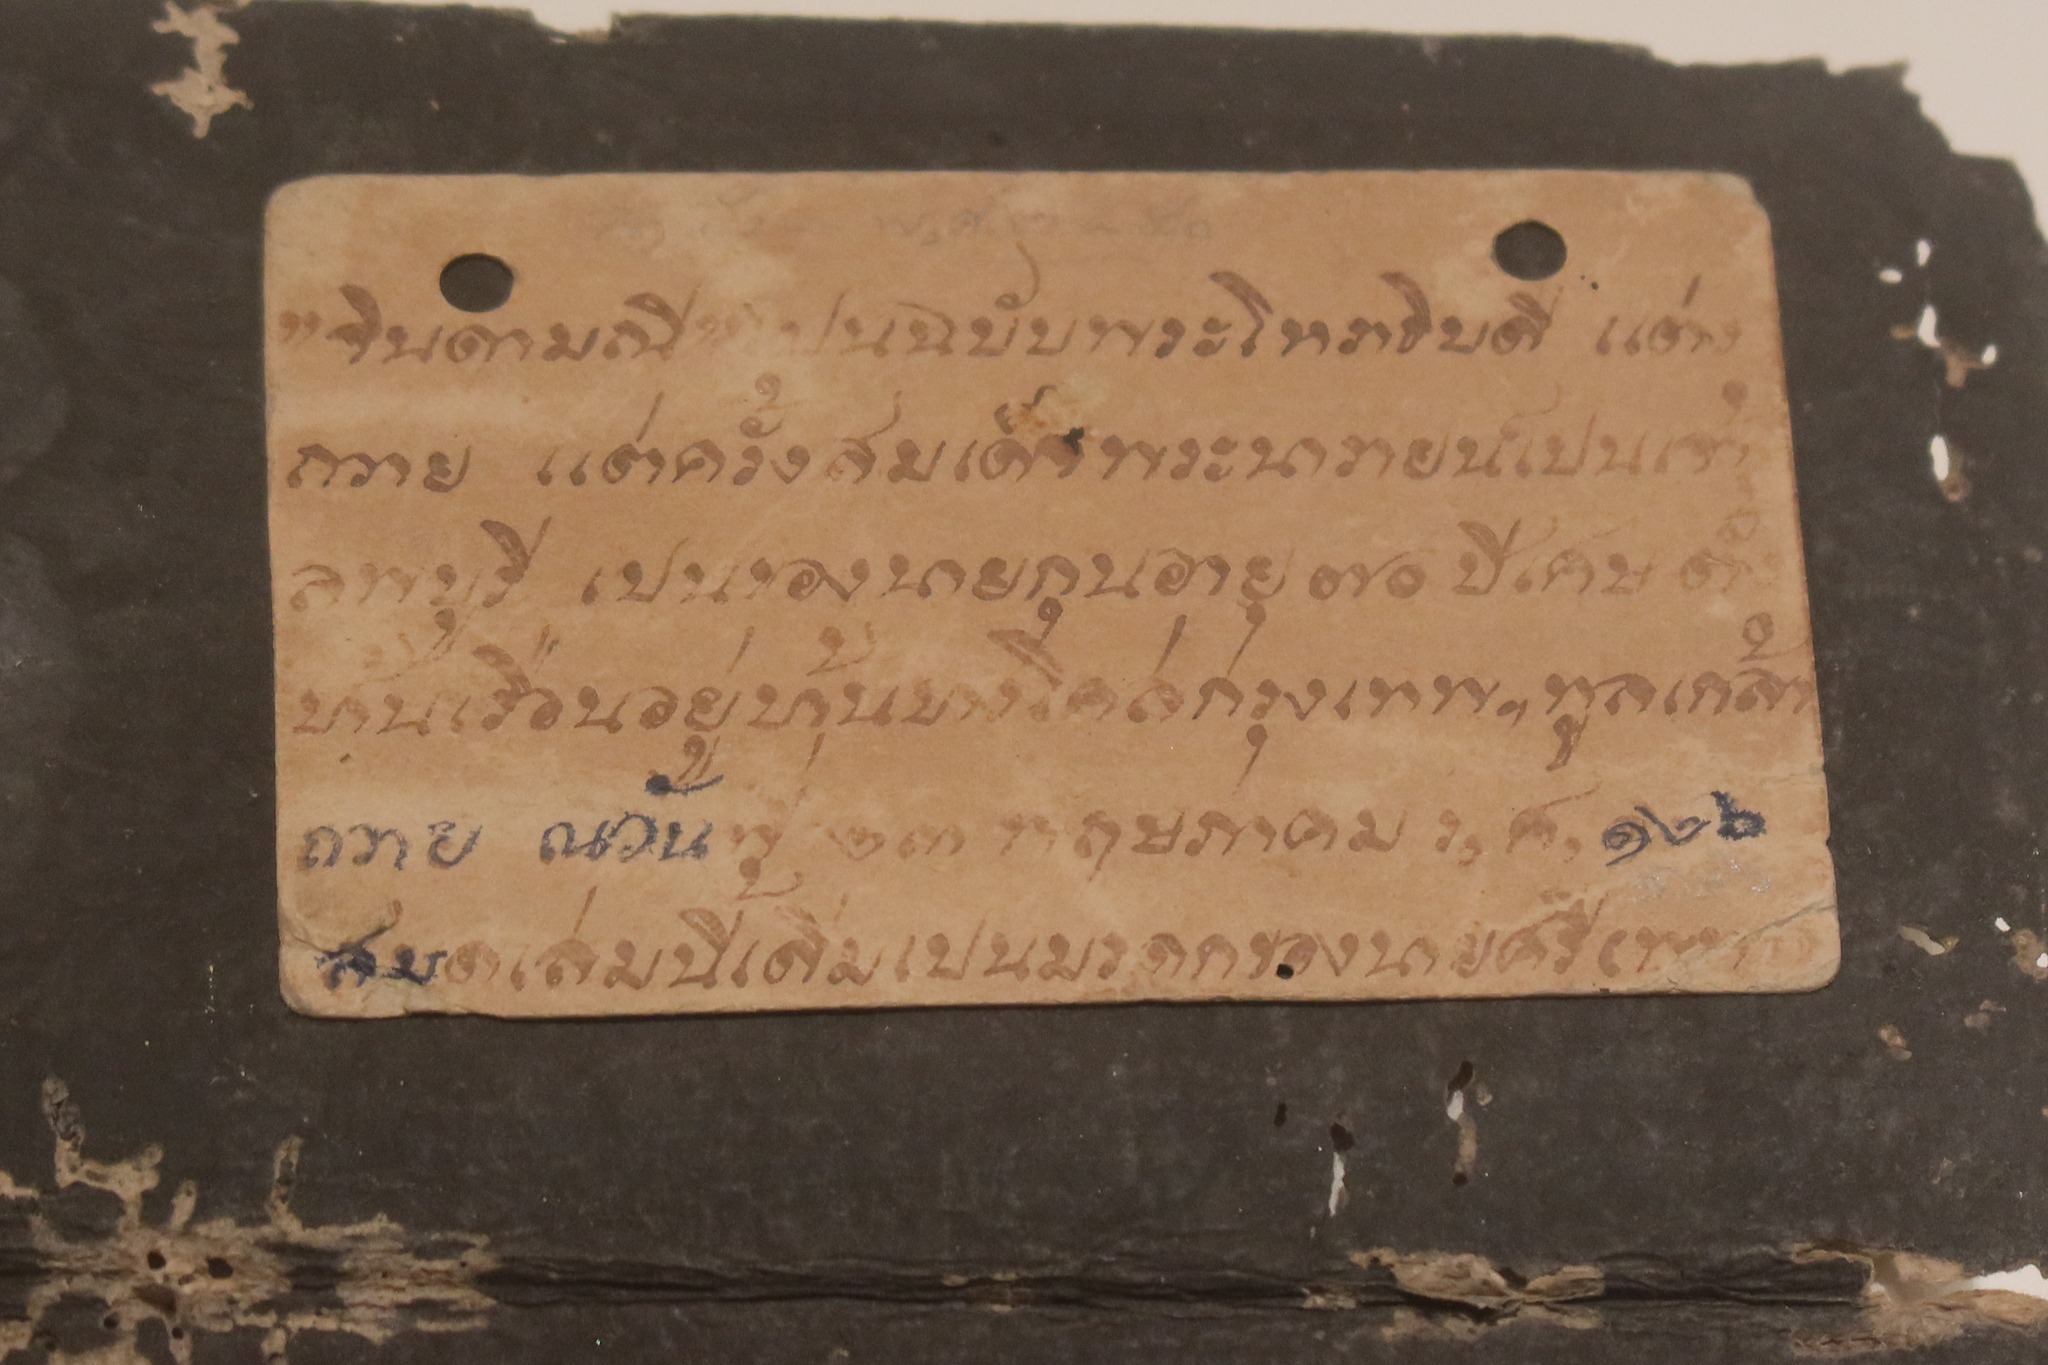 "จินดามณี" เปนฉบับพระโหราธิบดี แต่ง
ถวาย แต่ครั้งสมเด็จพระนารายน์เปนเจ้า
ลพบุรี เปนของนายกุนอายุ ๗๐ ปีเศษ ตั้ง
บ้านเรือนอยู่บ้านบางโคล่กรุงเทพฯ ทูลเกล้า
ถวาย ณวันที่ ๒๓ พฤษภาคม ร,ศ, ๑๒๖
สมุดเล่มนี้เดิมเปนมรดกของนายศรี